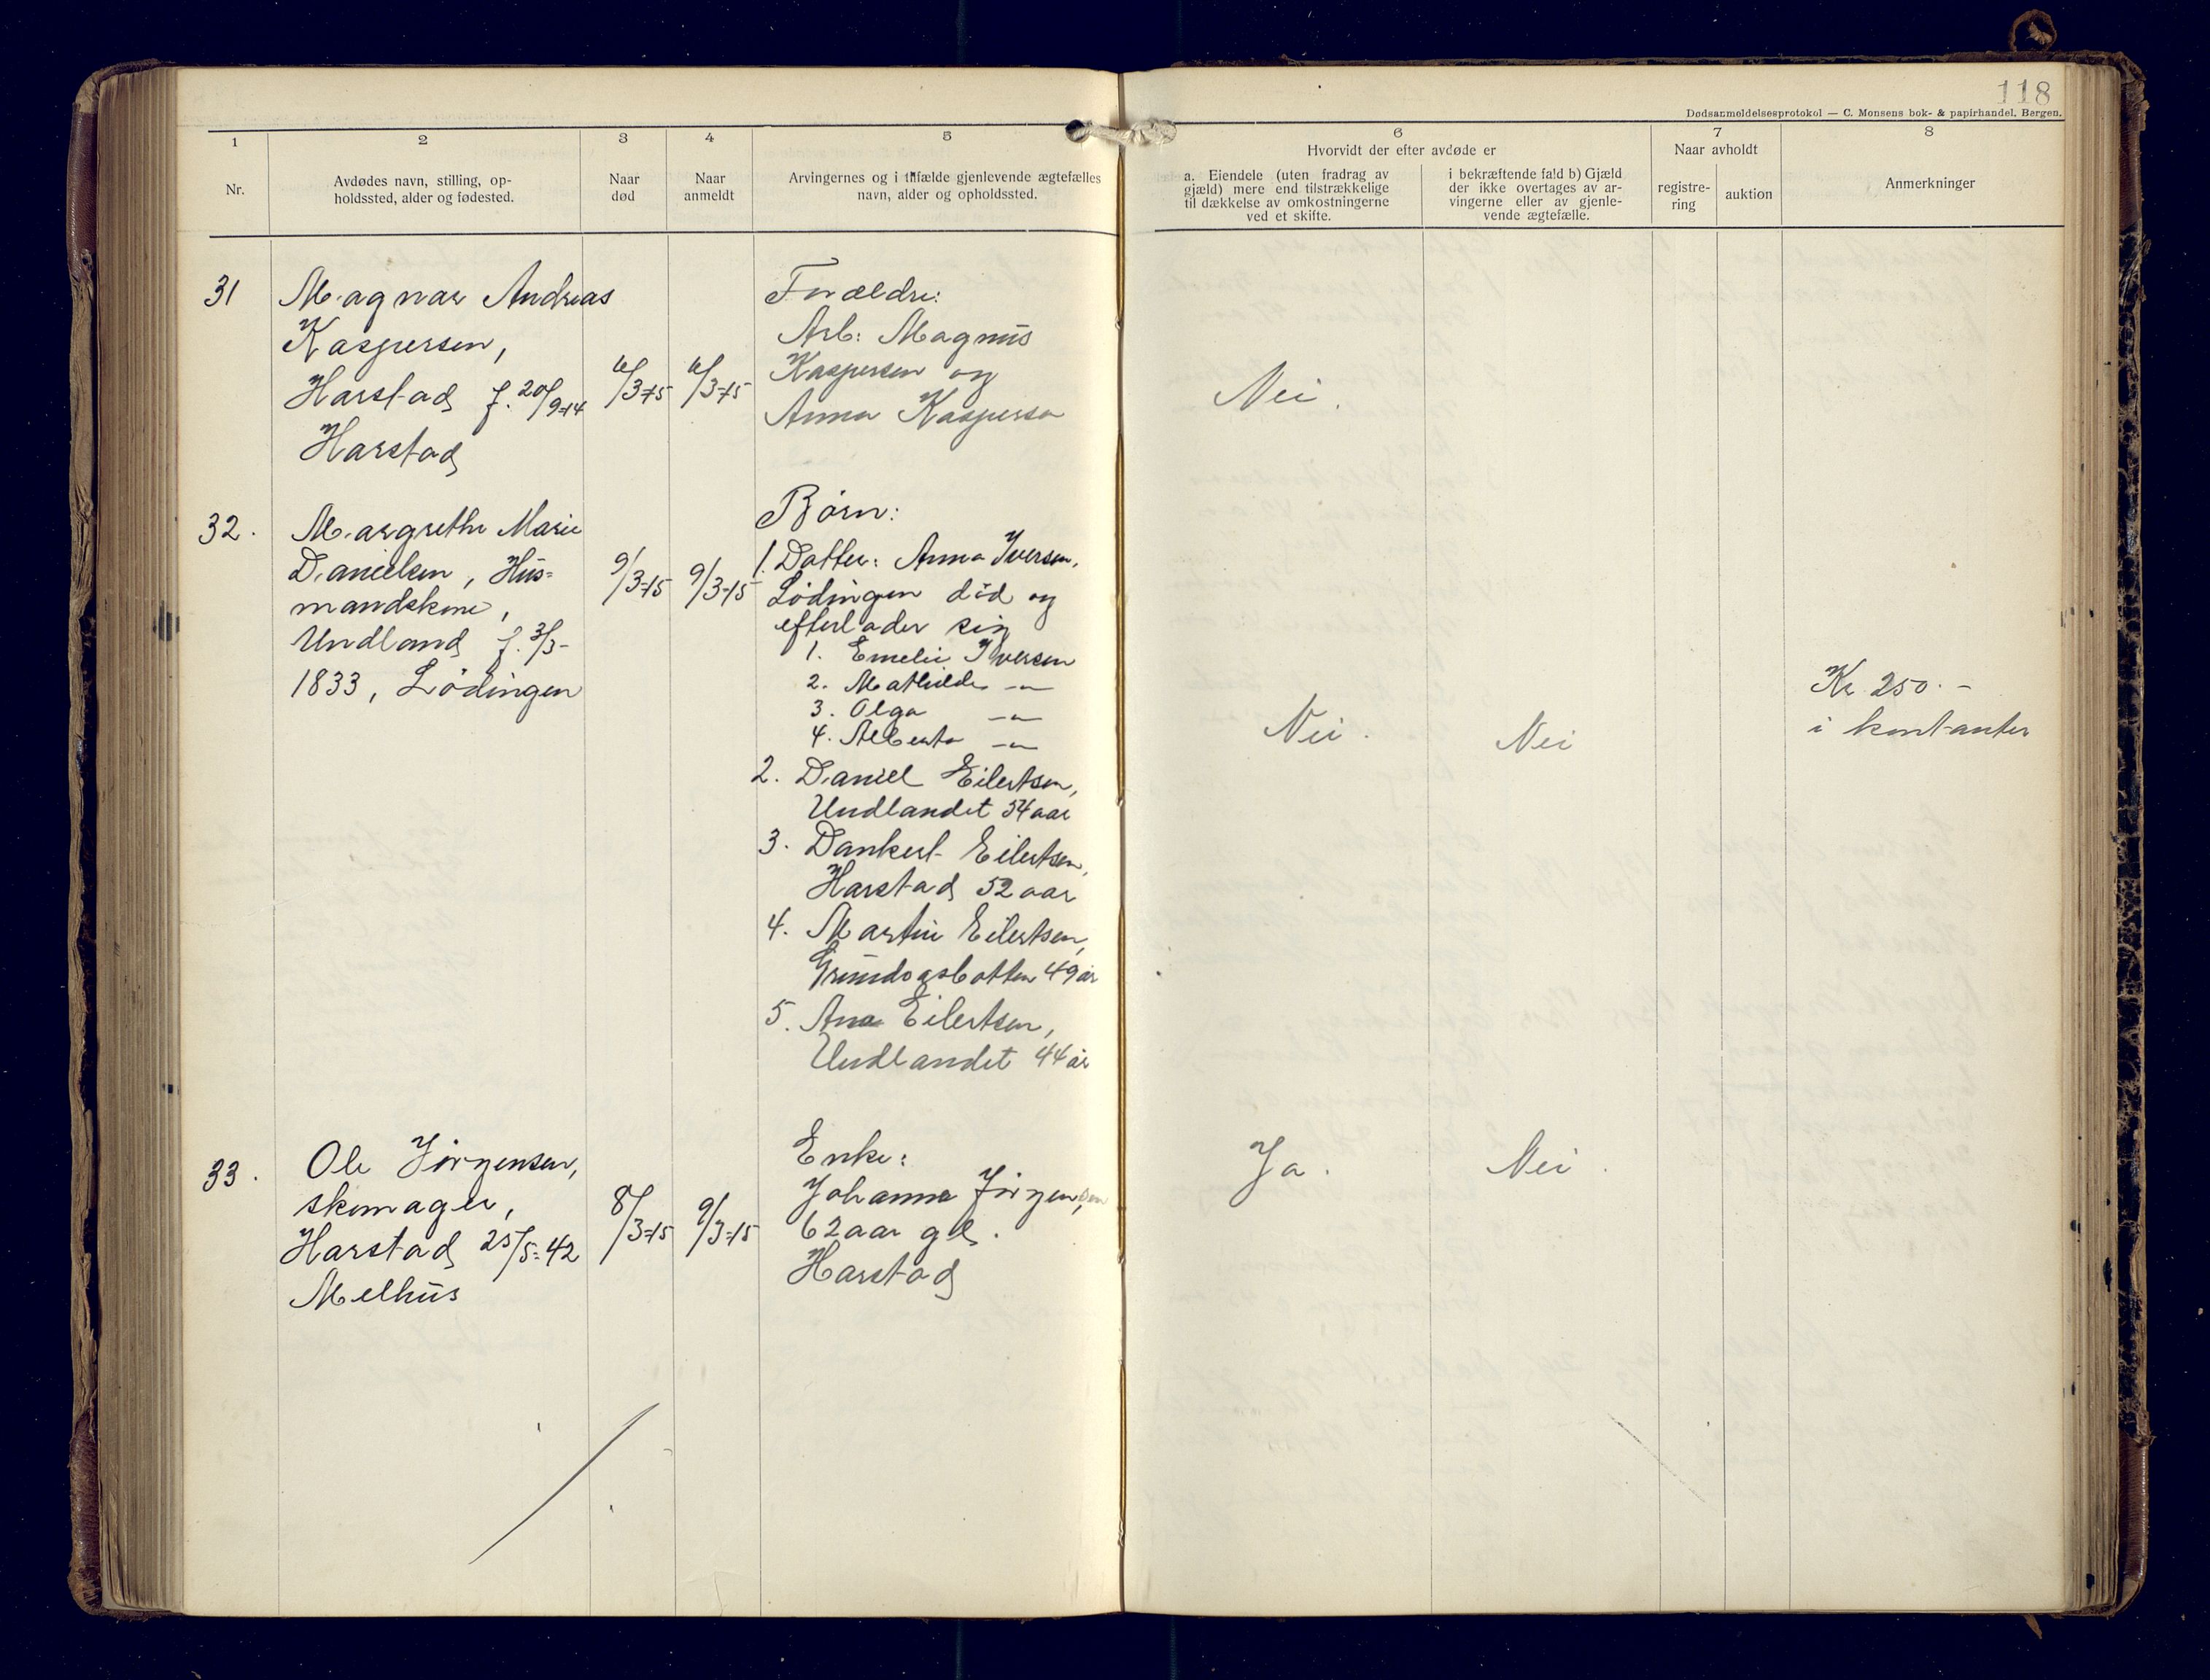 118
Dødsanmeldelsesprotokol — C. Monsens bok- & papirhandel. Bergen.
1
2
3
4
5
6
7
8
Nr.
Avdødes navn, stilling, op-
holdssted, alder og fødested.
Naar
død
Naar
anmeldt
Arvingernes og i tilfælde gjenlevende ægtefælles
navn, alder og opholdssted.
Hvorvidt der efter avdøde er
a. Eiendele (uten fradrag av
gjæld) mere end tilstrækkelige
til dækkelse av omkostningerne
ved et skifte.
i bekræftende fald b) Gjæld
der ikke overtages av ar-
vingerne eller av gjenle-
vende ægtefælle.
Naar avholdt
registre-
ring
auktion
Anmerkninger
31
Magnar Andreas
Kaspersen,
Harstad f. 20/9-14
Harstad
6/3-15
6/3-15
Forældre:
Arb: Magnus
Kaspersen og
Anna Kaspersen
Nei.
32.
Margrethe Marie
Danielsen, Hus=
mandskone,
Undland f. 3/3-
1833, Lödingen
9/3-15
9/3-15
Børn:
1. Datter: Anna Iversen,
Lödingen död og
efterlader sig
1. Emelie Iversen
2. Mathilde -"-
3. Olga -"-
4. Alberta -"-
2. Daniel Eilertsen,
Undlandet 54 aar
3. Dankert Eilertsen,
Harstad 52 aar
4. Martin Eilertsen,
49 år
5. Ana Eilertsen,
Undlandet 44 år
Nei.
Nei
Kr. 250.-
i kontanter
33.
Ole Jörgensen,
skomager,
Harstad 25/5-42
Melhus
8/3-15
9/3-15
Enke:
Johanna Jörgensen,
62 aar gl.
Harstad
Ja.
Nei.